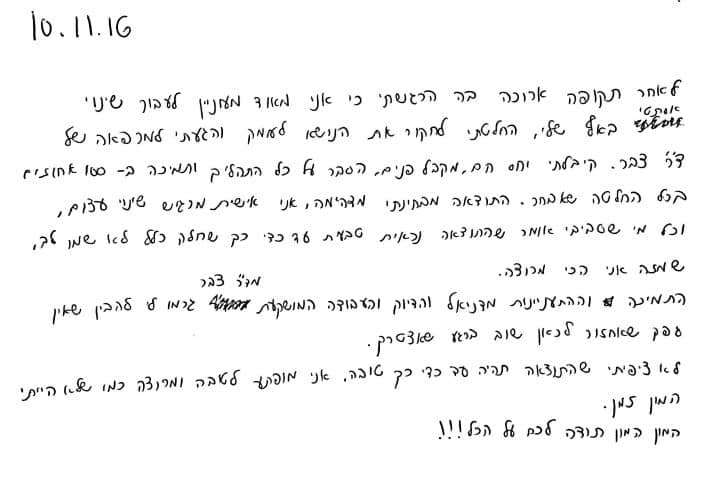 10.11.16
לאחר תקופה ארוכה בה הרגשתי כי אני מאוד מעוניין לעבור שינוי
אסתטי
באף שלי, החלטתי לחקור את הנושא לעומק והגעתי למרפאה של
ד"ר צבר. קיבלתי יחס חם, מקבל פנים, הסבר על כל התהליך ותמיכה ב- 100 אחוזים
בכל החלטה שאבחר. התוצאה מבחינתי מדהימה, אני אישית מרגיש שינוי עצום,
וכל מי שסביבי אומר שהתוצאה נראית טבעית עד כדי כך שחלה כלל לא שמו לב,
שמזה אני הכי מרוצה.
מד"ר צבר
התמיכה וההתעניינות מדניאל והדיוק והעבודה המושקעת גרמו לי להבין שאין
ספק שאחזור לכאן שוב ברגע שאצטרך.
לא ציפיתי שהתוצאה תהיה עד כדי כך טובה, אני מופתע לטובה ומרוצה כמו שלא הייתי
המון זמן.
המון המון תודה לכם על הכל!!!